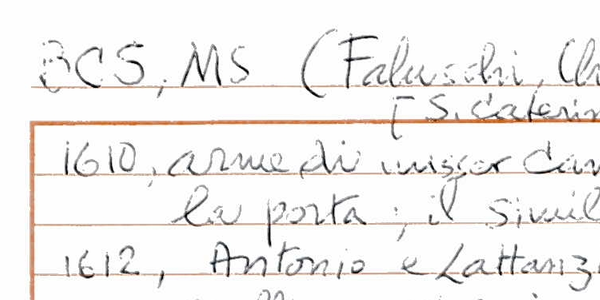 BCS, MS (Faluschi, Ch
[S. Caterin
1610, arme di misser Cam
la porta; il simil
1612, Antonio e Lattanz